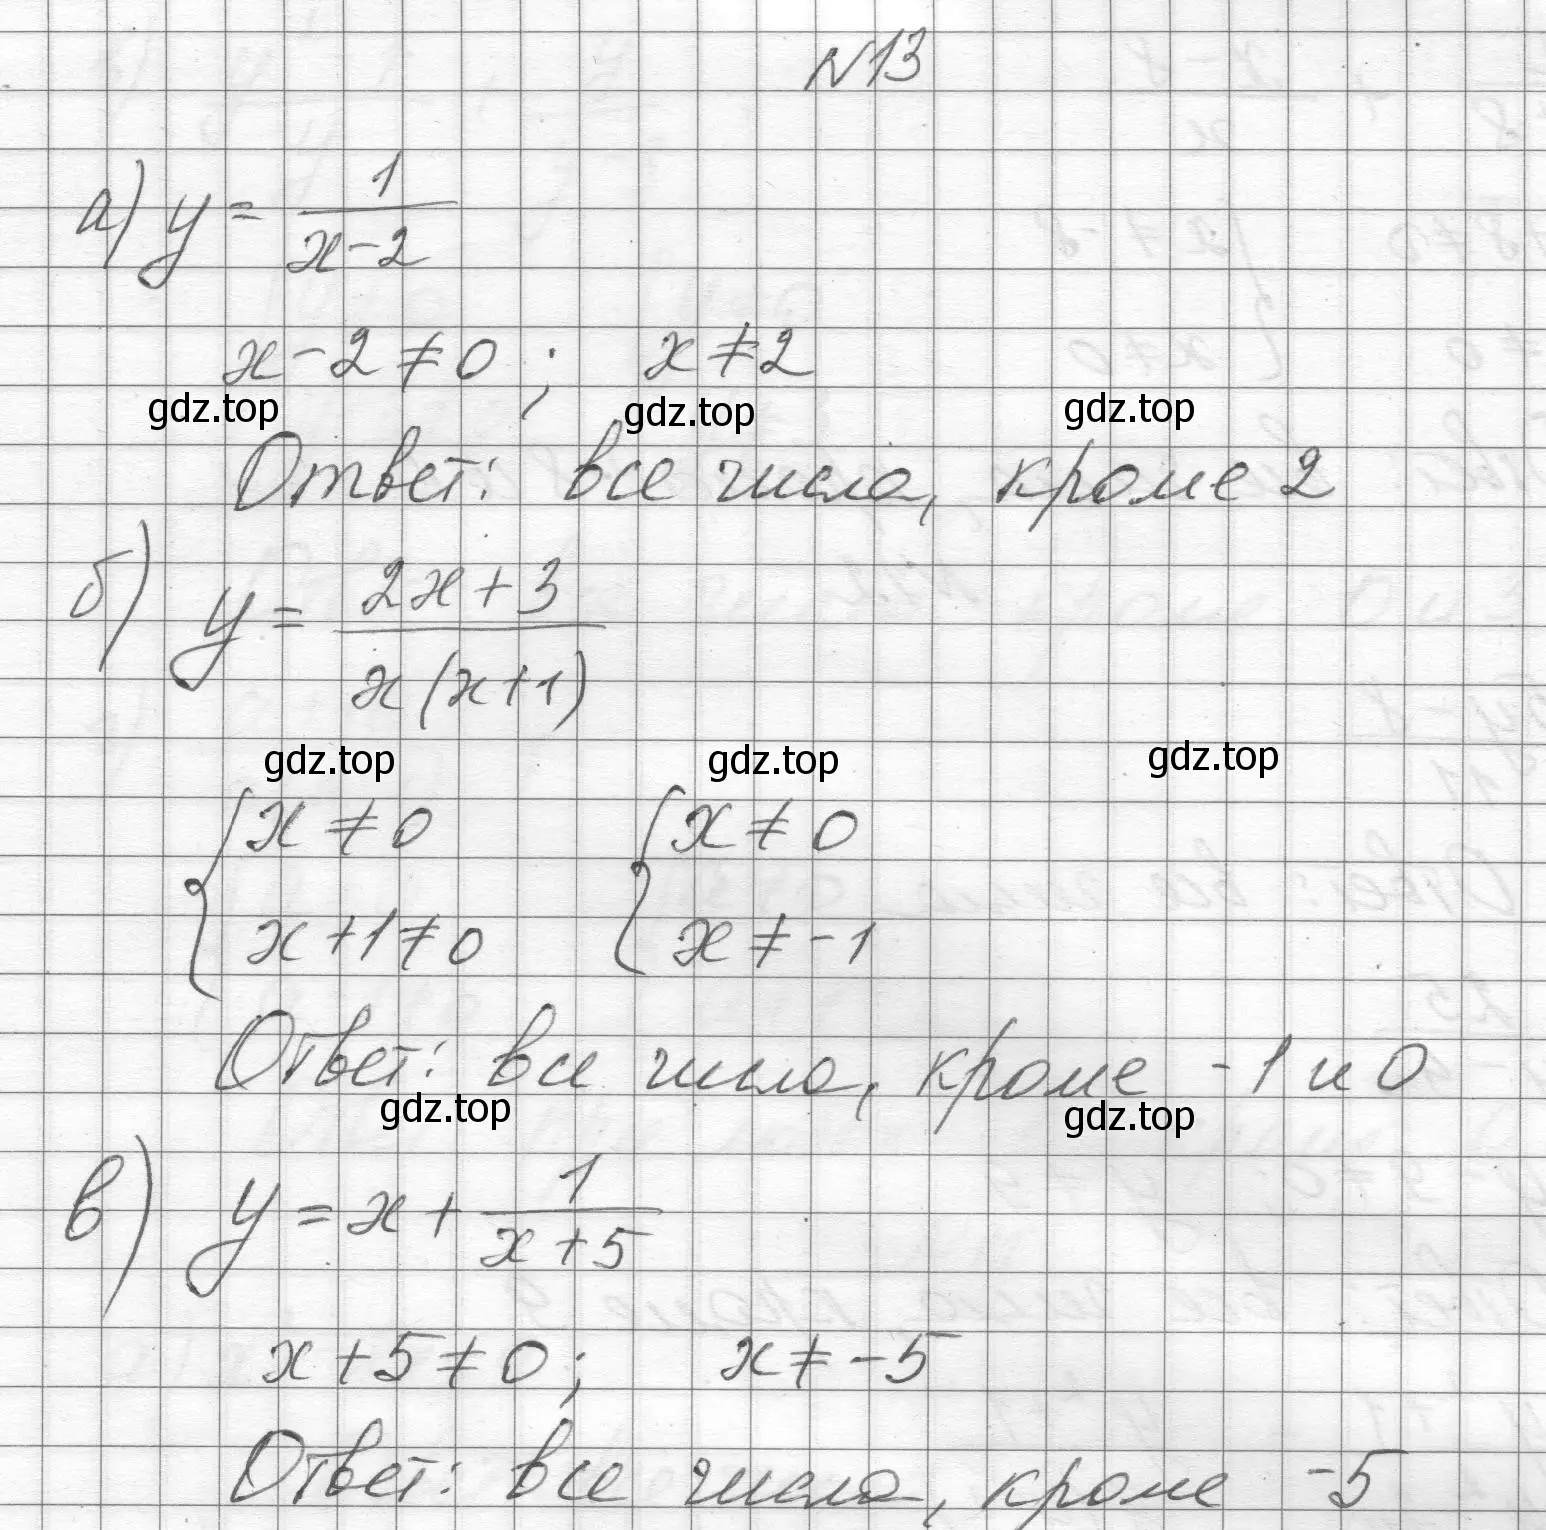 N13
а) y = 1/(x-2)
x-2≠0; x≠2
gdz.top gdz.top gdz.top
Ответ: все числа, кроме 2
б) y = (2x+3)/(x(x+1))
gdz.top gdz.top gdz.top
{x≠0 {x≠0
{x+1≠0 {x≠-1
Ответ: все числа, кроме -1 и 0
gdz.top gdz.top
в) y = x + 1/(x+5)
x+5≠0; x≠-5
Ответ: все числа, кроме -5